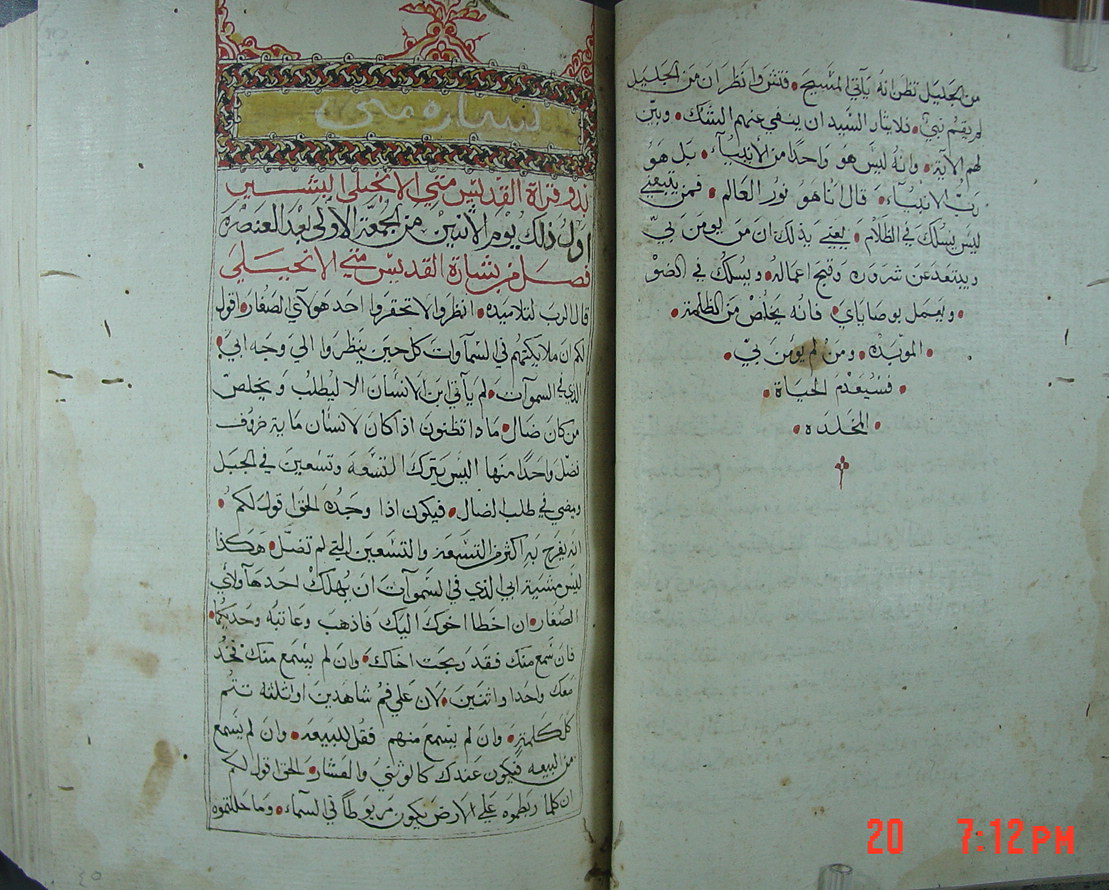 من الجليل تظن انه يأتي المسيح • فتش وانظر ان من الجليل
لم يقم نبي • فلا يقال السيد ان ينفي عنهم الشك • وبين
لهم الاية • وانه ليس هو واحدًا من الانبيآء • بل هو
ربّ الانبيآء • قال انا هو نور العالم • فمن يتبعني
ليس يسلك في الظلام • يعني بذلك ان من يومن بي
ويبتعد عن شروره وقبح اعماله ويسلك في الضوّ
• ويعمل بوصاياي • فانه يخلص من الظلمة •
• الموبّده • ومن لم يومن بي •
• فسيعدم الحياة •
• المخلده •
بشاره متى
بدو قراة القديس متي الانجيلي البشير
اول ذلك يوم الاثنين من الجمعة الاولى بعد العنصرة
فصل من بشارة القديس متي الانجيلي
قال الرب لتلاميذه • انظروا لا تحقروا احد هولآي الصغار • اقول
لكم ان ملايكتهم في السمآوات كل حين ينظروا الى وجه ابي
الذي في السموآت • لم يأتي ابن الانسان الا ليطلب ويخلص
من كان ضال • ماذا تظنون اذا كان لانسان ماية خروف
تضل واحدًا منها اليس يترك التسعة وتسعين في الجبل
ويمضي في طلب الضال • فيكون اذا وجده الحق اقول لكم •
انه يفرح به اكثر من التسعة والتسعين التي لم تضل • هكذا
ليس مشية ابي الذي في السموآت ان يهلك احد هآولاي
الصغار • ان اخطا اخوك اليك فاذهب وعاتبه وحدكما •
فان سمع منك فقد ربحت اخاك • وان لم يسمع منك فخذ
معك واحدا واثنين • لان علي فم شاهدين او ثلثه تتم
كل كلمة • وان لم يسمع منهم فقل للبيعه • وان لم يسمع
من البيعه فيكون عندك كالوثني والعشار • الحق اقول لكم
ان كلما ربطموه علي الارض يكون مربوطاً في السمآء • وما حللتموه
20 7:12 PM